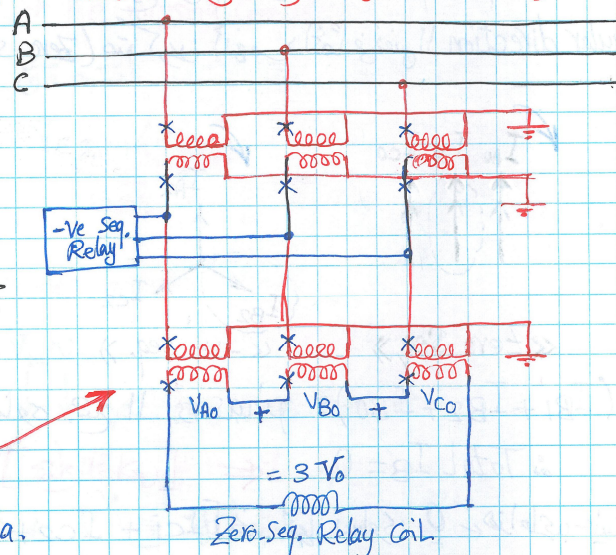 A
B
C
-Ve Seq.
Relay
VAO + VBO + VCO
= 3 Vo
a.
Zero-Seq. Relay Coil